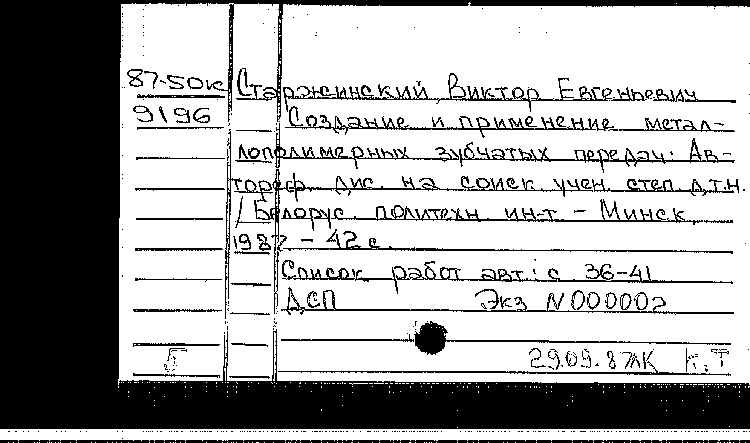 87-50к Старжинский, Виктор Евгеньевич
9196 Создание и применение метал-
лополимерных зубчатых передач: Ав-
тореф. дис. на соиск. учен. степ. д.т.н.
/ Белорус. политехн. ин-т. - Минск,
1987 - 42 с.
Список работ авт.: с 36-41
ДСП Экз N000002
Б 29.09.87 ЛК К.Т